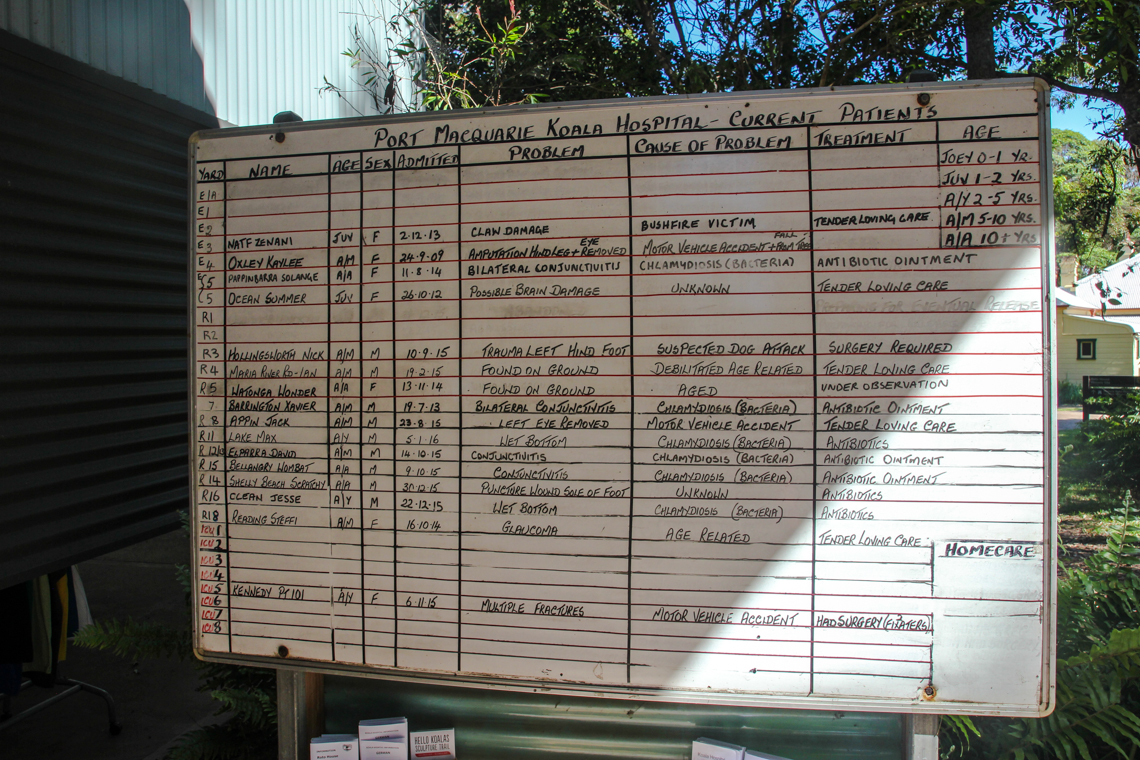 PORT MACQUARIE KOALA HOSPITAL - CURRENT PATIENTS
YARD NAME AGE SEX ADMITTED PROBLEM CAUSE OF PROBLEM TREATMENT AGE
JOEY 0-1 YR.
JUV 1-2 YRS.
A/Y 2-5 YRS.
A/M 5-10 YRS.
A/A 10+ YRS
E/A
E1
E2
E3 NATF ZENANI JUV F 2.12.13 CLAW DAMAGE BUSHFIRE VICTIM TENDER LOVING CARE
E4 OXLEY KAYLEE A/M F 24.9.09 AMPUTATION HINDLEG + EYE REMOVED MOTOR VEHICLE ACCIDENT + FALL FROM TREE
5 PAPPINBARRA SOLANGE A/A F 11.8.14 BILATERAL CONJUNCTIVITIS CHLAMYDIOSIS (BACTERIA) ANTIBIOTIC OINTMENT
C5 OCEAN SUMMER JUV F 26.10.12 POSSIBLE BRAIN DAMAGE UNKNOWN TENDER LOVING CARE
R1 PREPARING FOR EVENTUAL RELEASE
R2
R3 HOLLINGSWORTH NICK A/M M 10.9.15 TRAUMA LEFT HIND FOOT SUSPECTED DOG ATTACK SURGERY REQUIRED
R4 MARIA RIVER RO-IAN A/M M 19.2.15 FOUND ON GROUND DEBILITATED AGE RELATED TENDER LOVING CARE
R5 WATONGA WONDER A/A F 13.11.14 FOUND ON GROUND AGED UNDER OBSERVATION
7 BARRINGTON XAVIER A/M M 19.7.13 BILATERAL CONJUNCTIVITIS CHLAMYDIOSIS (BACTERIA) ANTIBIOTIC OINTMENT
R8 APPIN JACK A/M M 23.8.15 LEFT EYE REMOVED MOTOR VEHICLE ACCIDENT TENDER LOVING CARE
R11 LAKE MAX A/Y M 5.1.16 WET BOTTOM CHLAMYDIOSIS (BACTERIA) ANTIBIOTICS
R 12/13 ELPARRA DAVID A/M M 14.10.15 CONJUNCTIVITIS CHLAMYDIOSIS (BACTERIA) ANTIBIOTIC OINTMENT
R15 BELLANGRY WOMBAT A/A M 9.10.15 CONJUNCTIVITIS CHLAMYDIOSIS (BACTERIA) ANTIBIOTIC OINTMENT
R14 SHELLY BEACH SCRATCHY A/A M 30.12.15 PUNCTURE WOUND SOLE OF FOOT UNKNOWN ANTIBIOTICS
R16 CLEAN JESSE A/Y M 22.12.15 WET BOTTOM CHLAMYDIOSIS (BACTERIA) ANTIBIOTICS
R18 READING STEFFI A/M F 16.10.14 GLAUCOMA AGE RELATED TENDER LOVING CARE
ICU 1
ICU 2 HOMECARE
ICU 3
ICU 4
ICU 5
ICU 6 KENNEDY PT 101 A/Y F 6.11.15 MULTIPLE FRACTURES MOTOR VEHICLE ACCIDENT HAD SURGERY
ICU 7
ICU 8
HELLO KOALAS
SCULPTURE TRAIL